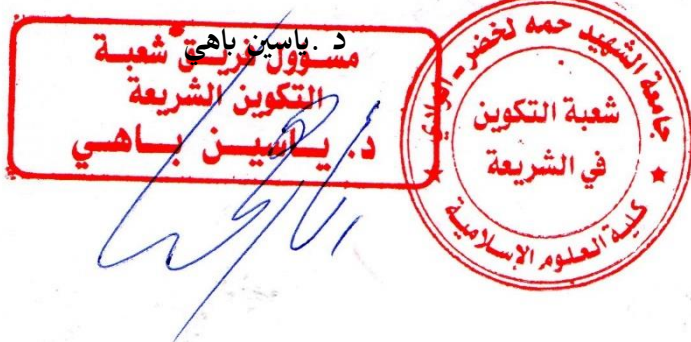 د .ياسين باهي
مسؤول فريق شعبة
التكوين الشريعة
د. ياسين باهي
جامعة الشهيد حمه لخضر - الوادي
شعبة التكوين
في الشريعة
كلية العلوم الإسلامية